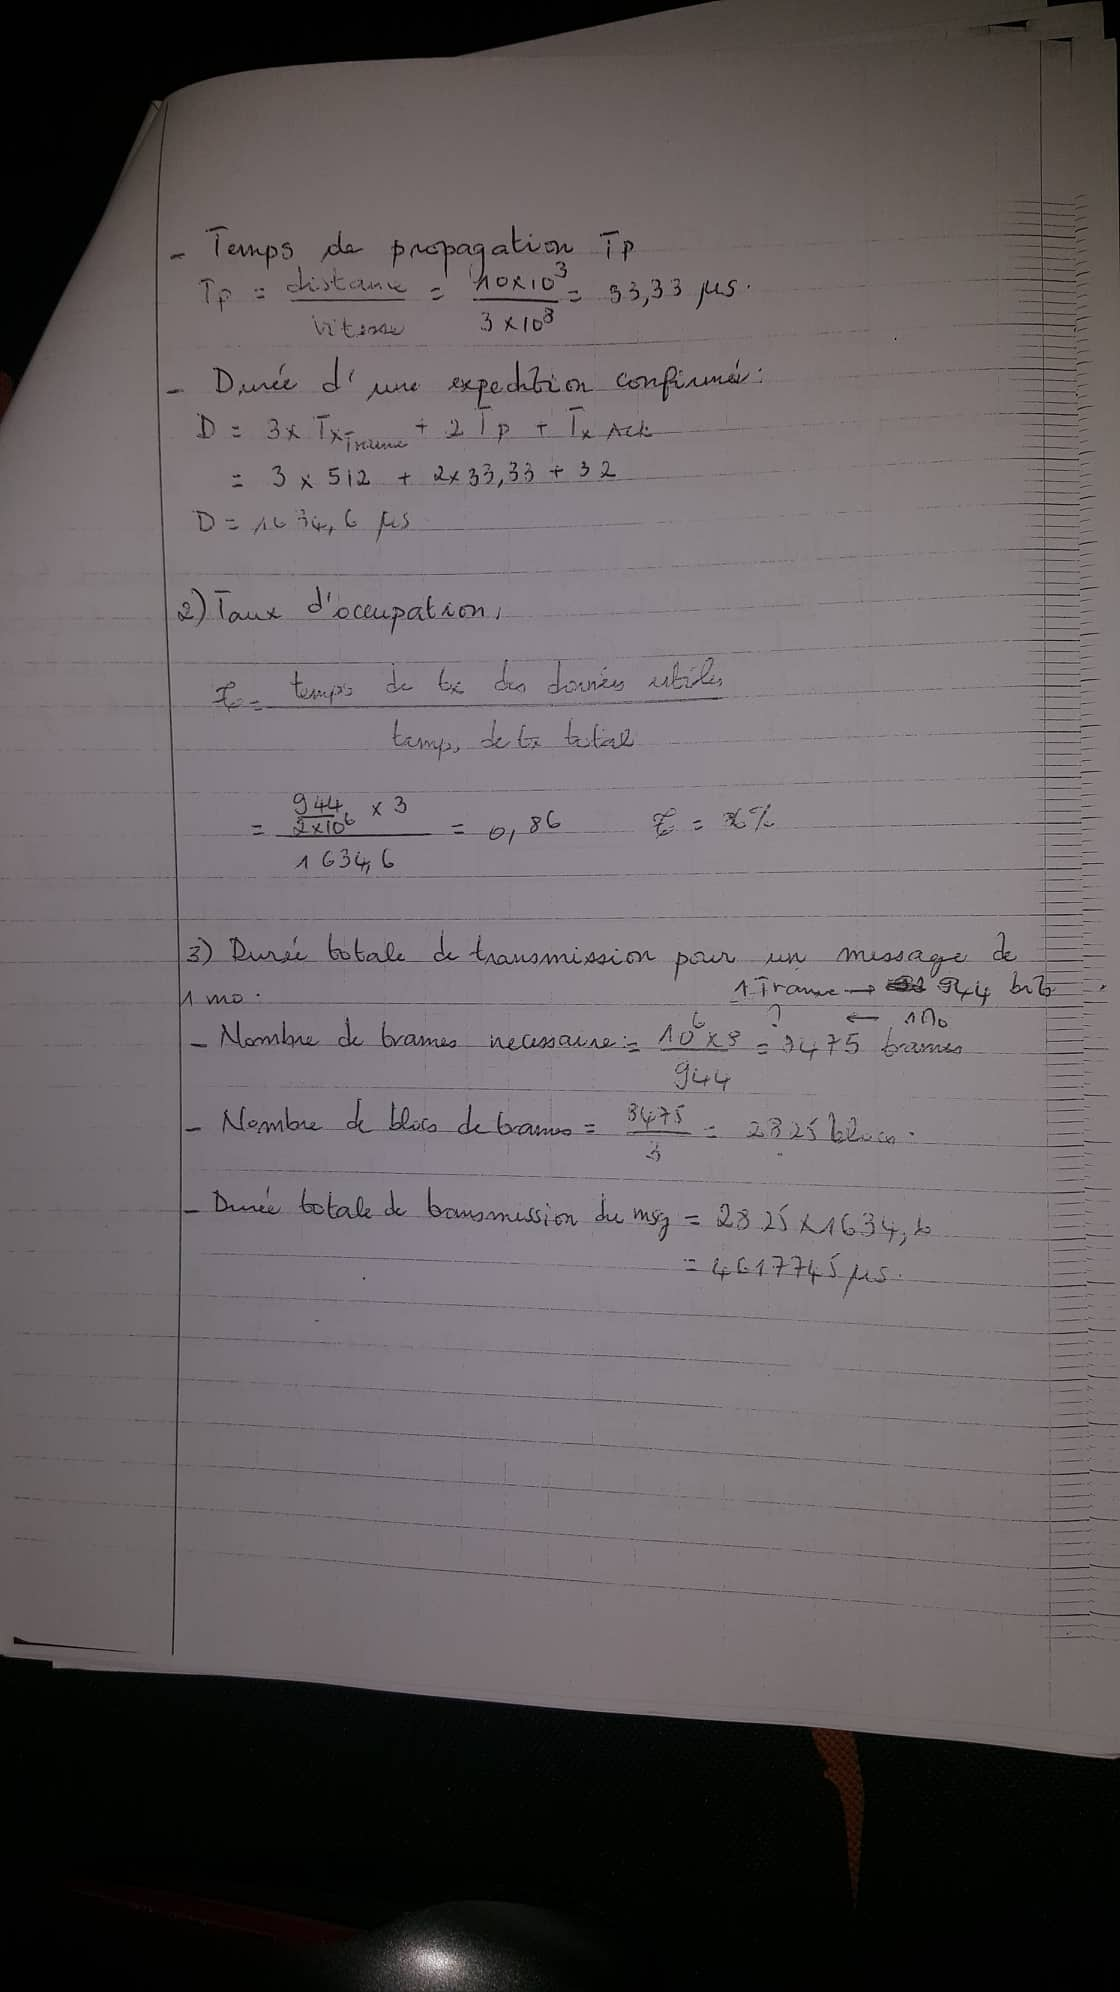 - Temps de propagation Tp
Tp = distance / vitesse = 10x10³ / 3x10⁸ = 33,33 µs.
- Durée d'une expedition confirmée:
D = 3x Tx Trame + 2 Tp + Tx Ack
= 3 x 512 + 2x33,33 + 32
D = 1634,6 µs
2) Taux d'occupation,
τ = temps de tx des données utiles / temps de tx total
= 944 / 2x10⁶ x 3 / 1634,6 = 0,86 τ = %
3) Durée totale de transmission pour un message de
1 mo.
1 Trame → 944 bits
? ← 1Mo
- Nombre de trames necessaire = 10⁶ x 8 / 944 = 8475 trames
- Nombre de blocs de trames = 8475 / 3 = 2825 blocs.
- Durée totale de transmission du msg = 2825 x 1634,6
= 4617745 µs.